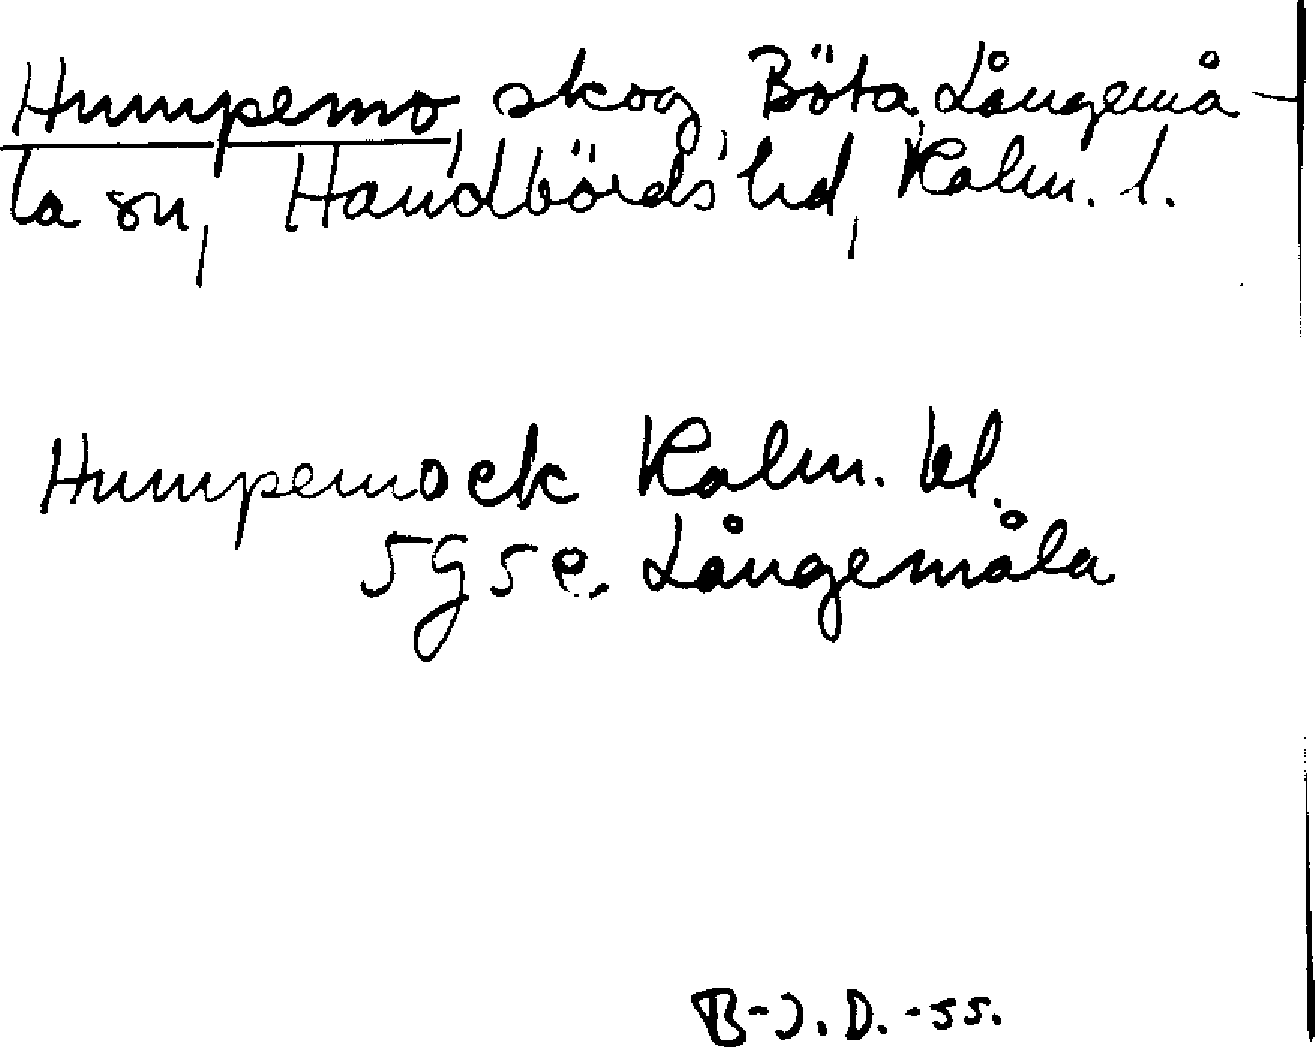 Humpemo, skog, Böta, Långemå-
la sn, Handbörds hd, Kalm. l.
Humpemock Kalm. bl.
5G5e. Långemåla
B-J.D.-55.